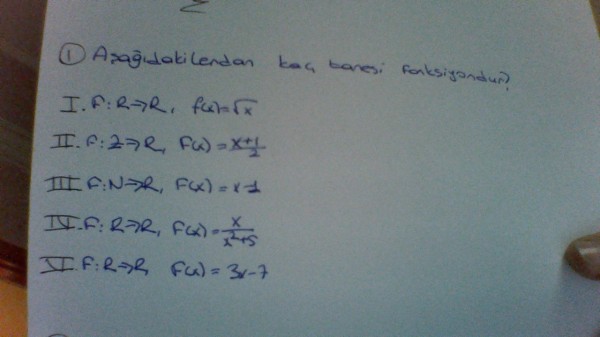 ① Aşağıdakilerden kaç tanesi fonksiyondur?
I. F: R→R, f(x)=√x
II. F: Z→R, F(x) = x+1/2
III F: N→R, F(x) = x-1
IV. F: R→R, F(x) = x/x²+5
VI. F: R→R F(x) = 3x-7